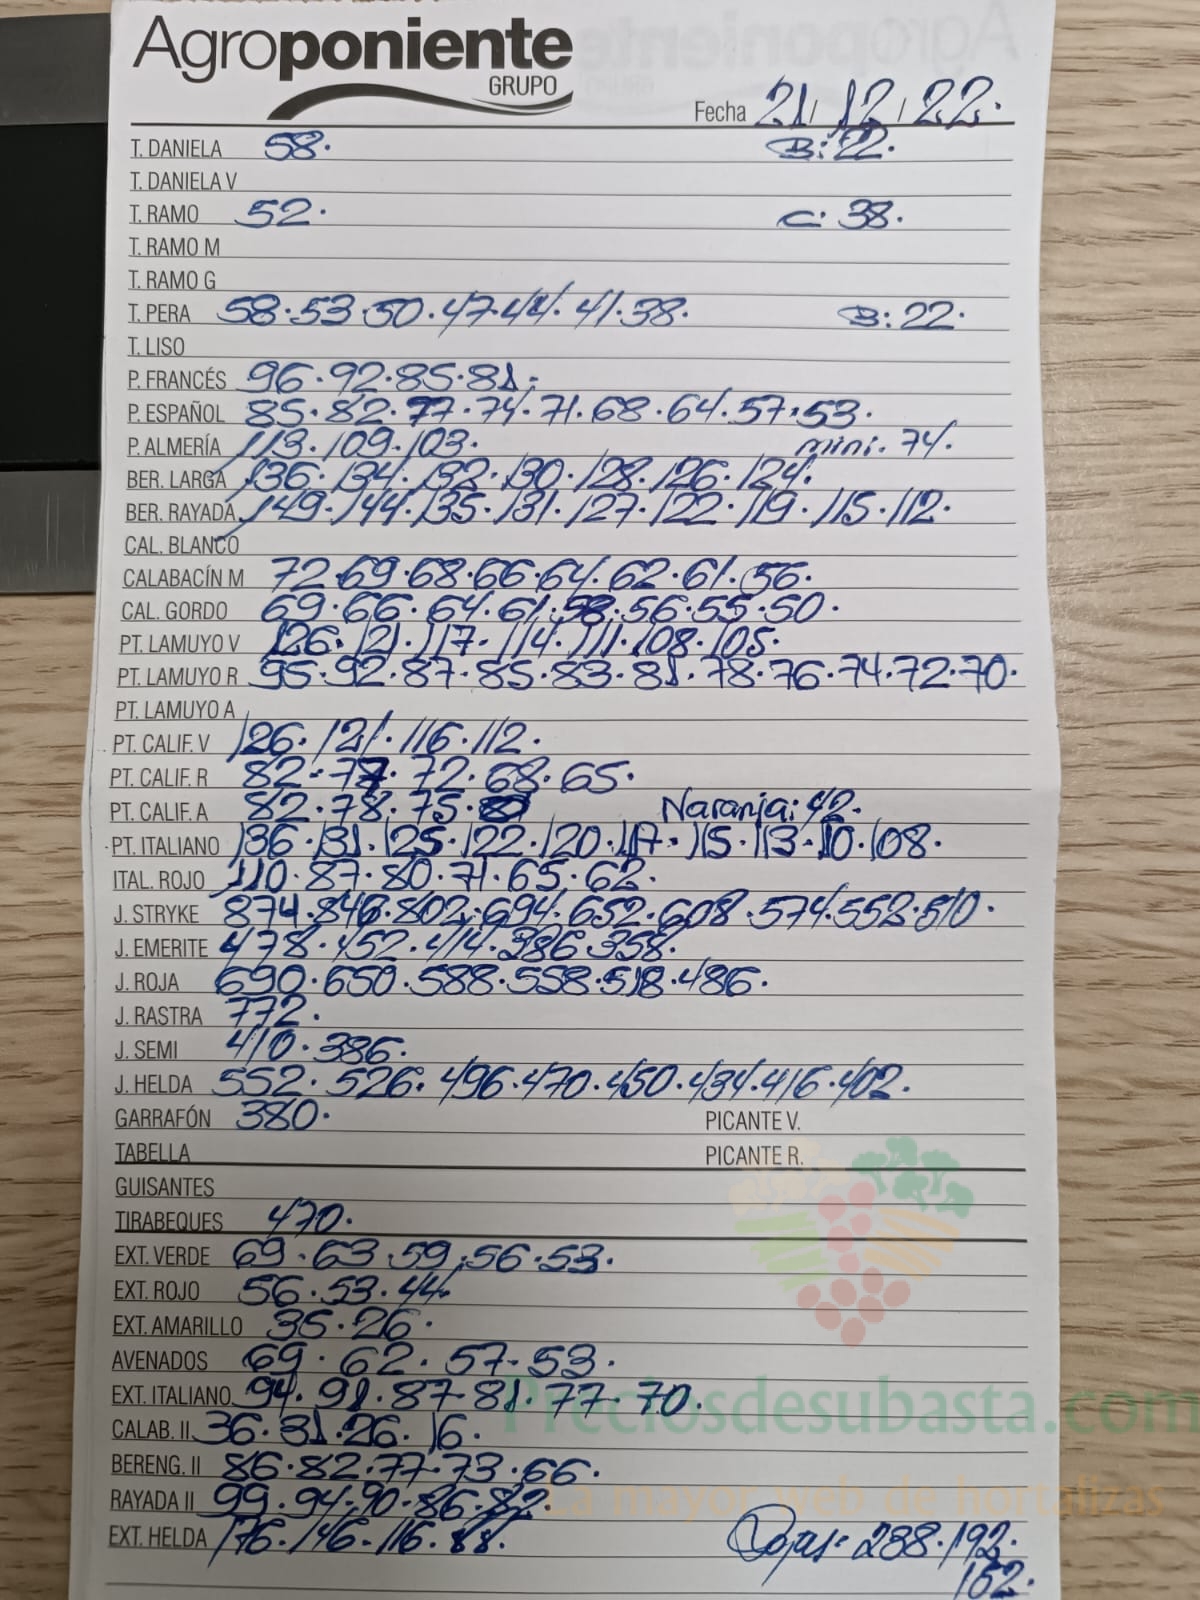 Agroponiente
GRUPO
Fecha 21/12/22.
T. DANIELA 58. B: 22.
T. DANIELA V
T. RAMO 52. C: 38.
T. RAMO M
T. RAMO G
T. PERA 58.53.50.47.44.41.38. B: 22.
T. LISO
P. FRANCÉS 96.92.85.81.
P. ESPAÑOL 85.82.77.74.71.68.64.57.53.
P. ALMERÍA 113.109.103. mini: 74.
BER. LARGA 136.134.132.130.128.126.124.
BER. RAYADA 149.144.135.131.127.122.119.115.112.
CAL. BLANCO
CALABACÍN M 72.69.68.66.64.62.61.56.
CAL. GORDO 69.66.64.61.58.56.55.50.
PT. LAMUYO V 126.121.117.114.111.108.105.
PT. LAMUYO R 95.92.87.85.83.81.78.76.74.72.70.
PT. LAMUYO A
PT. CALIF. V 126.121.116.112.
PT. CALIF. R 82.77.72.68.65.
PT. CALIF. A 82.78.75. Naranja: 42.
PT. ITALIANO 136.131.125.122.120.117.115.113.110.108.
ITAL. ROJO 110.87.80.71.65.62.
J. STRYKE 874.846.802.694.652.608.574.552.510.
J. EMERITE 478.452.414.386.358.
J. ROJA 690.650.588.558.518.486.
J. RASTRA 772.
J. SEMI 410.386.
J. HELDA 552.526.496.470.450.434.416.402.
GARRAFÓN 380. PICANTE V.
TABELLA PICANTE R.
GUISANTES
TIRABEQUES 470.
EXT. VERDE 69.63.59.56.53.
EXT. ROJO 56.53.44.
EXT. AMARILLO 35.26.
AVENADOS 69.62.57.53.
EXT. ITALIANO 94.91.87.81.77.70.
Preciosdesubasta.com
CALAB. II 36.31.26.16.
BERENG. II 86.82.77.73.66.
RAYADA II 99.94.90.86.82
La mayor web de hortalizas
EXT. HELDA 176.146.116.88. Rojas: 288.192.
152.